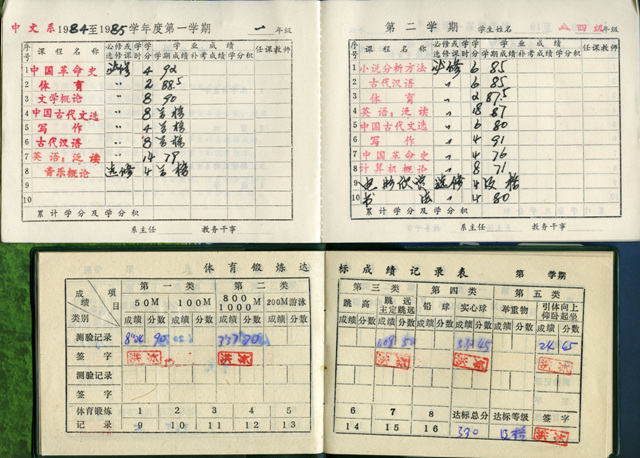 中文系1984至1985学年度第一学期 一年级
序号 课程名称 必修或选修 学时 学分 学业成绩 成绩 补考成绩 学分积 任课教师
1 中国革命史 必修 4 92
2 体育 〃 2 88.5
3 文学概论 〃 8 90
4 中国古代文选 〃 8 合格
5 写作 〃 4 合格
6 古代汉语 〃 8 合格
7 英语:泛读 〃 14 79
8 音乐概论 选修 4 合格
9
10
累计学分及学分积
系主任 教务干事
第二学期 学生姓名 四级 年级
序号 课程名称 必修或选修 学时 学分 学业成绩 成绩 补考成绩 学分积 任课教师
1 小说分析方法 必修 6 85
2 古代汉语 〃 6 85
3 体育 〃 2 87.5
4 英语:泛读 〃 18 87
5 中国古代文选 〃 6 80
6 写作 〃 4 91
7 中国革命史 〃 4 76
8 计算机概论 〃 8 71
9 选修 4 及格
10 书法 〃 4 80
累计学分及学分积
系主任 教务干事
体育锻炼达标成绩记录表 第 学期
项目 成绩 类别 第一类 第二类 第三类 第四类 第五类
50M 100M 800M 1000M 200M游泳 跳高 跳远 立定跳远 铅球 实心球 举重物 引体向上 仰卧起坐
成绩 分数 成绩 分数 成绩 分数 成绩 分数 成绩 分数 成绩 分数 成绩 分数 成绩 分数 成绩 分数 成绩 分数
测验记录 90 24 65
签字 洪冰 洪冰 洪冰 洪冰 洪冰
测验记录
签字
体育锻炼 1 2 3 4 5 6 7 8 达标总分 达标等级 签字
记录 9 10 11 12 13 14 15 16 330 及格 洪冰